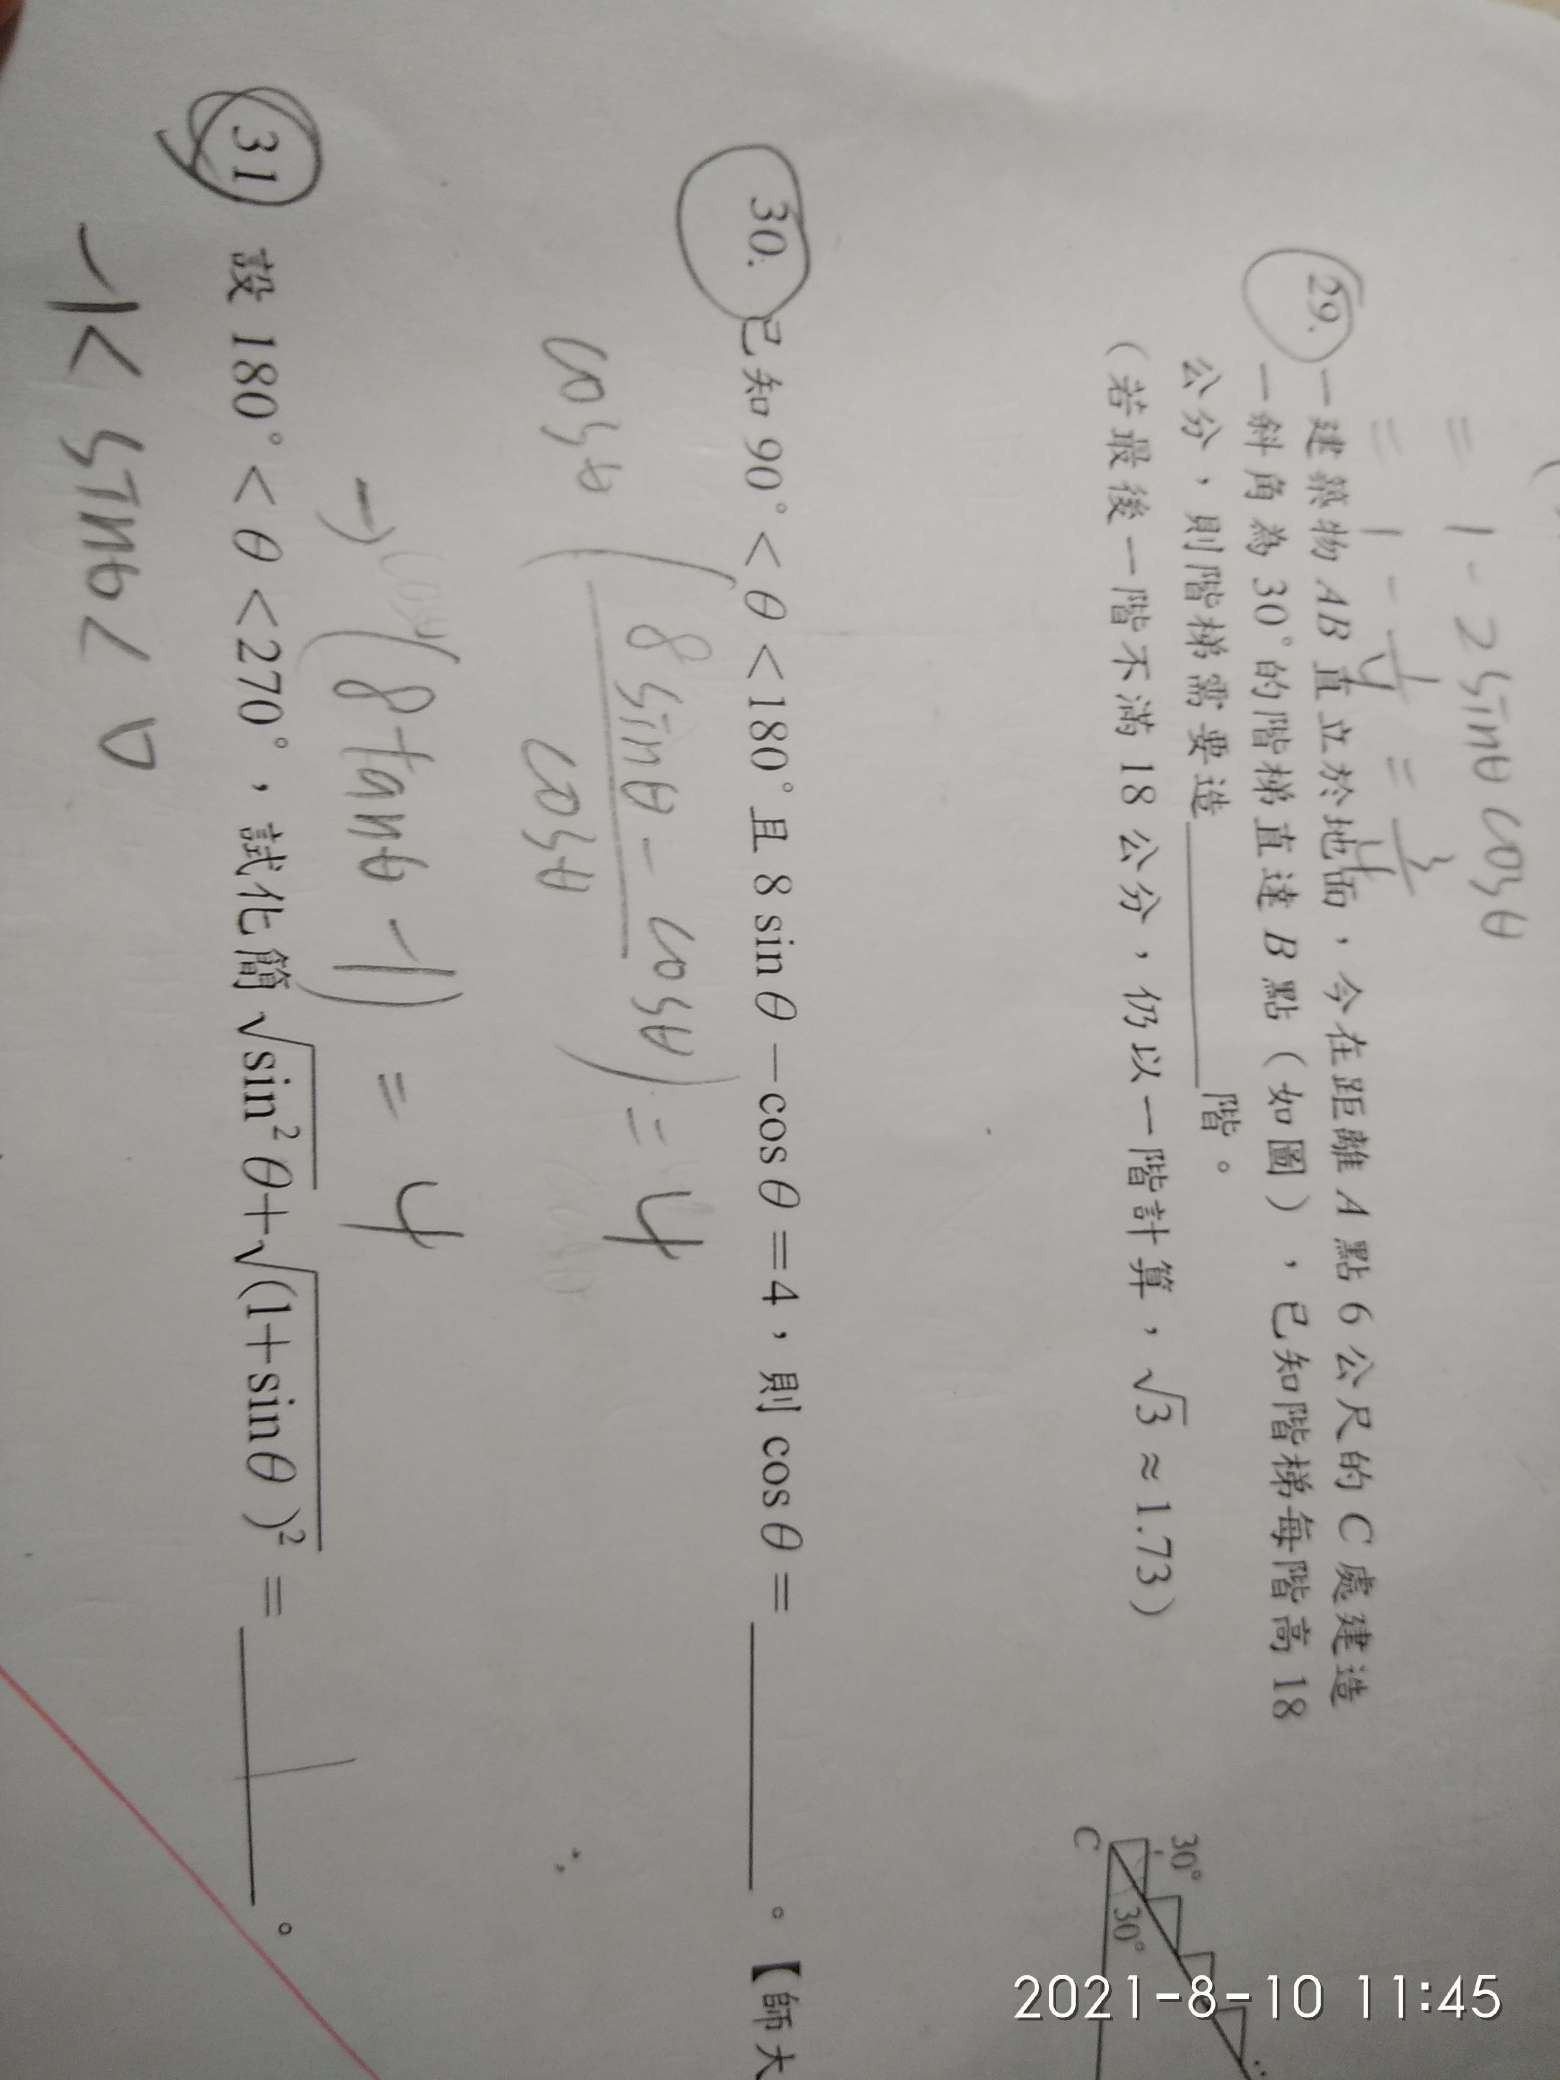 = 1 - 2 sinθ cosθ
= 1 - 1/4 = 3/4
29. 一建築物 AB 直立於地面，今在距離 A 點 6 公尺的 C 處建造
一斜角為 30° 的階梯直達 B 點（如圖），已知階梯每階高 18
公分，則階梯需要造________階。
（若最後一階不滿 18 公分，仍以一階計算，√3 ≈ 1.73）
C 30° 30°
30. 已知 90° < θ < 180° 且 8 sin θ - cos θ = 4，則 cos θ = ________。【師大
cosθ (8 sinθ - cosθ / cosθ) = 4
→ cosθ (8 tanθ - 1) = 4
31 設 180° < θ < 270°，試化簡 √sin²θ + √(1+sinθ)² = ________。
-1 < sinθ < 0
2021-8-10 11:45